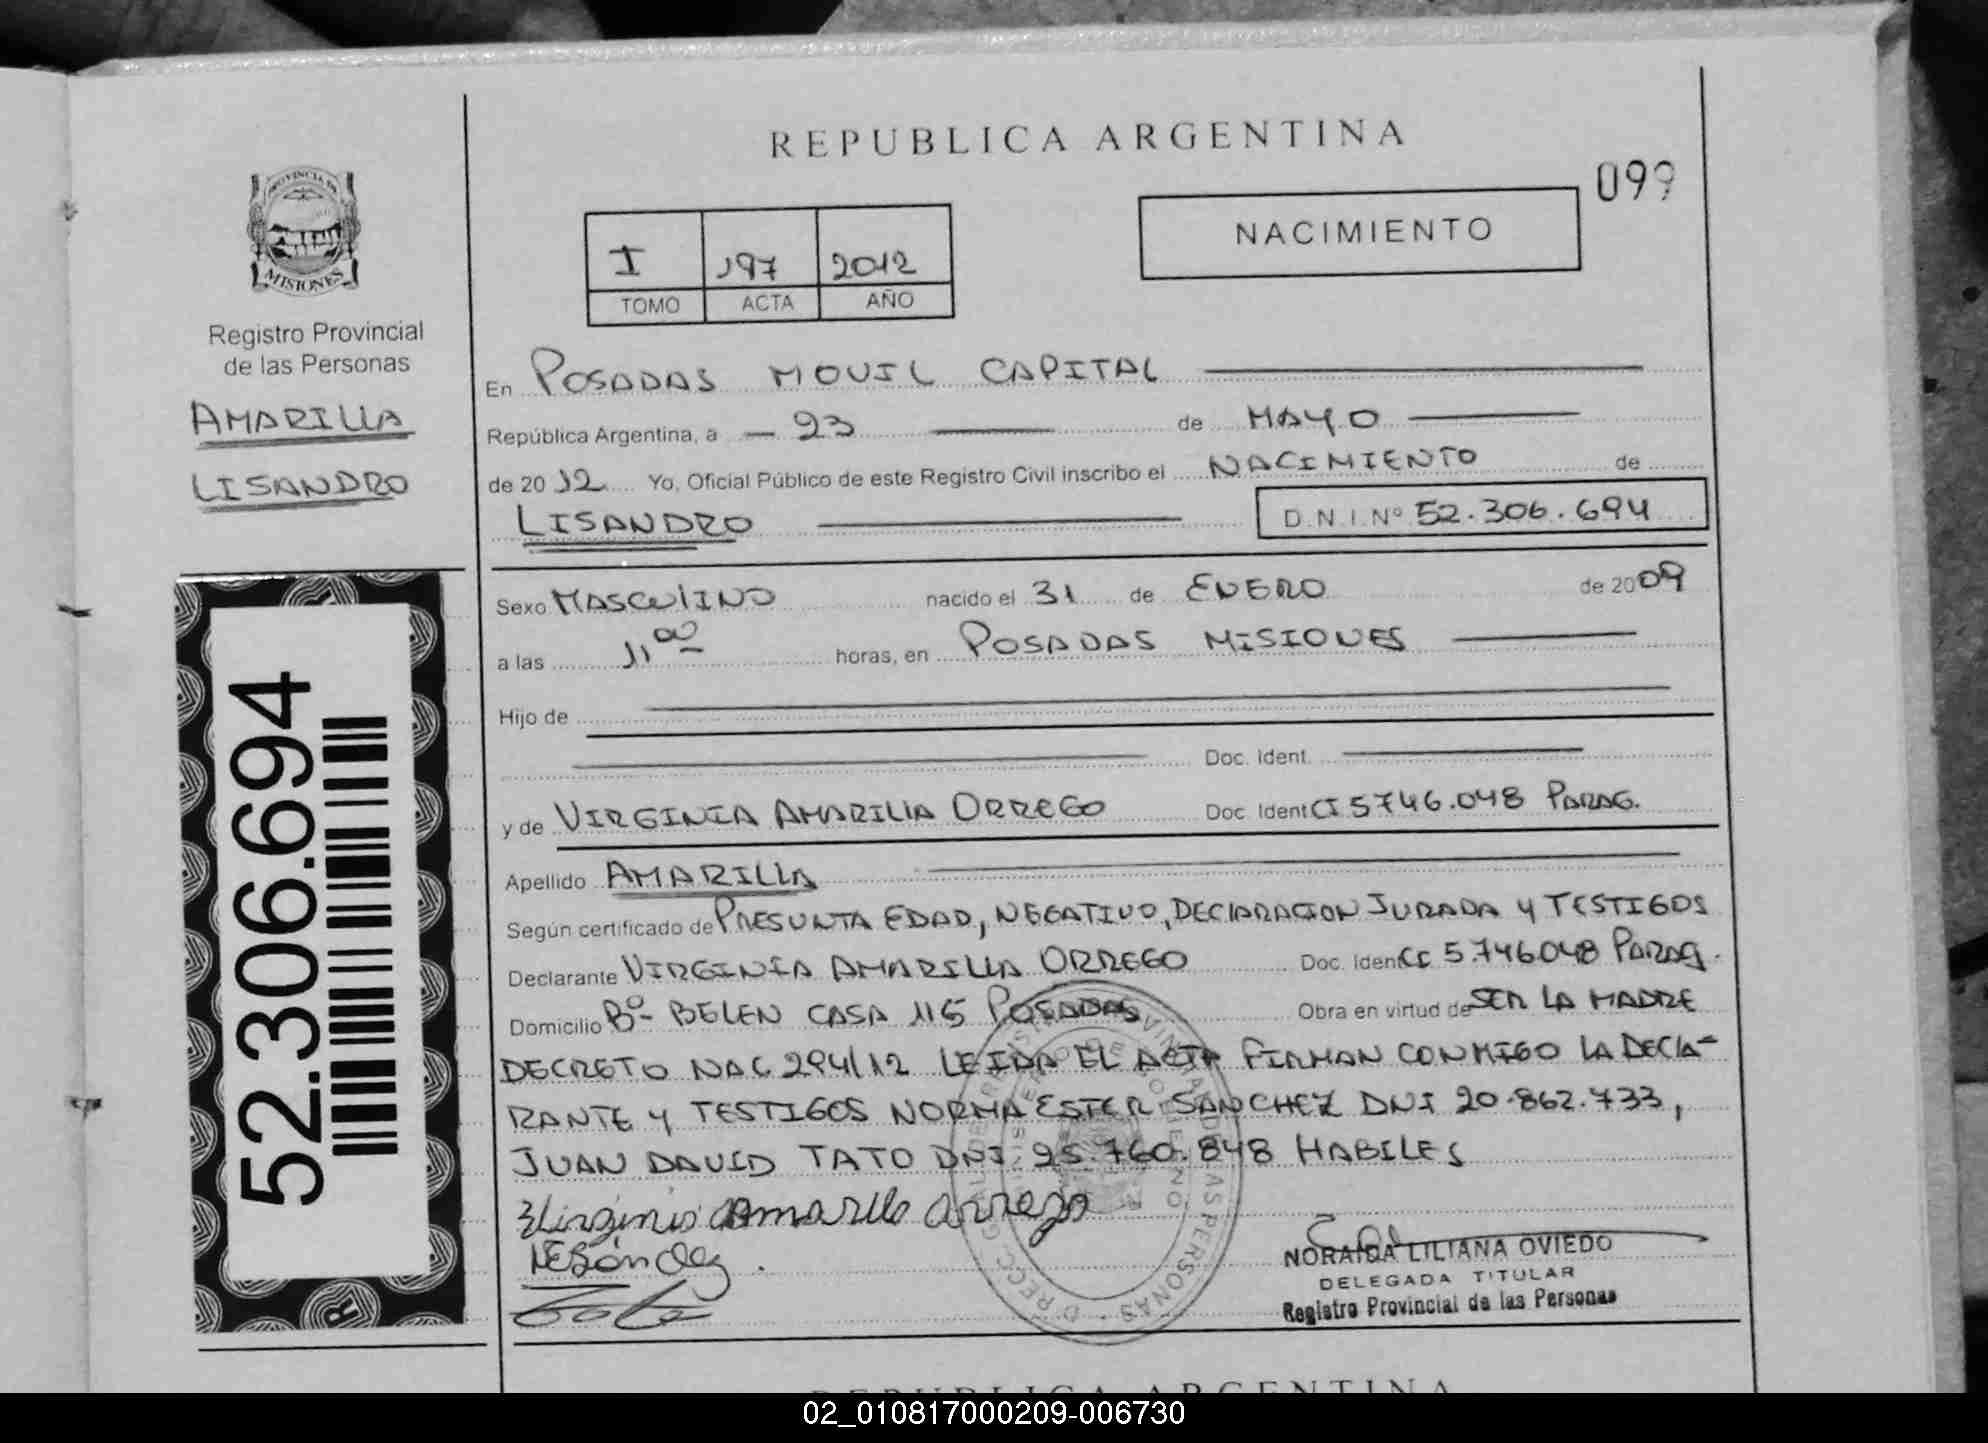 REPUBLICA ARGENTINA
099
NACIMIENTO
I 197 2012
TOMO ACTA AÑO
PROVINCIA DE
MISIONES
Registro Provincial
de las Personas
AMARILLA
LISANDRO
52.306.694
En POSADAS MOVIL CAPITAL
República Argentina, a 23 de MAYO
de 2012 Yo, Oficial Público de este Registro Civil inscribo el NACIMIENTO de
LISANDRO D.N.I. Nº 52.306.694
Sexo MASCULINO nacido el 31 de ENERO de 2009
a las 11 00 horas, en POSADAS MISIONES
Hijo de
Doc. Ident.
y de VIRGINIA AMARILLA ORREGO Doc. Ident CI 5746.048 PARAG.
Apellido AMARILLA
Según certificado de PRESUNTA EDAD, NEGATIVO, DECLARACION JURADA Y TESTIGOS
Declarante VIRGINIA AMARILLA ORREGO Doc. Iden CI 5.746.048 PARAG.
Domicilio Bº BELEN CASA 115 POSADAS Obra en virtud de SER LA MADRE
DECRETO NAC 294/12 LEIDA EL ACTA FIRMAN CONMIGO LA DECLA-
RANTE Y TESTIGOS NORMA ESTER SANCHEZ DNI 20.862.733,
JUAN DAVID TATO DNI 25.760.848 HABILES
Virginia Amarilla orrego
NORAIDA LILIANA OVIEDO
DELEGADA TITULAR
Registro Provincial de las Personas
REPUBLICA ARGENTINA
02_010817000209-006730